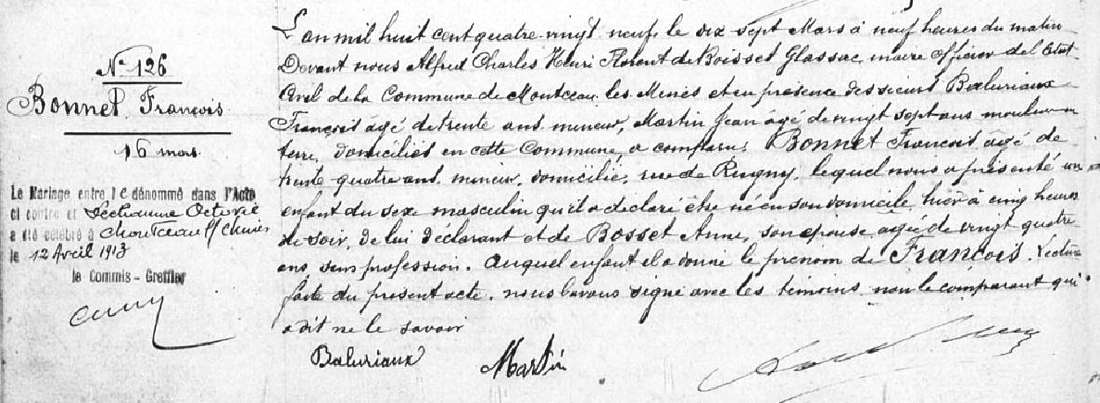 N° 126
Bonnet François
16 mars
Le Mariage entre le dénommé dans l'Acte
ci contre et Octavie
a été célébré à Montceau les Mines
le 12 Avril 1913
le Commis-Greffier
L'an mil huit cent quatre vingt neuf le dix sept Mars à neuf heures du matin
Devant nous Alfred Charles Henri Florent de Boisset Glassac maire officier de l'Etat
Civil de la Commune de Montceau les Mines et en presence des sieurs Baluriaux
François âgé de trente ans mineur, Martin Jean âgé de vingt sept ans mouleur en
terre, domiciliés en cette Commune, a comparu Bonnet François âgé de
trente quatre ans mineur, domicilié, rue de lequel nous a présenté un
enfant du sexe masculin qu'il a déclaré être né en son domicile hier à cinq heures
de soir, de lui déclarant et de Bosset Anne, son épouse agée de vingt quatre
ans, sans profession. Auquel enfant il a donné le prénom de François. Lecture
faite du present acte, nous l'avons signé avec les temoins non le comparant qui
a dit ne le savoir
Baluriaux Martin